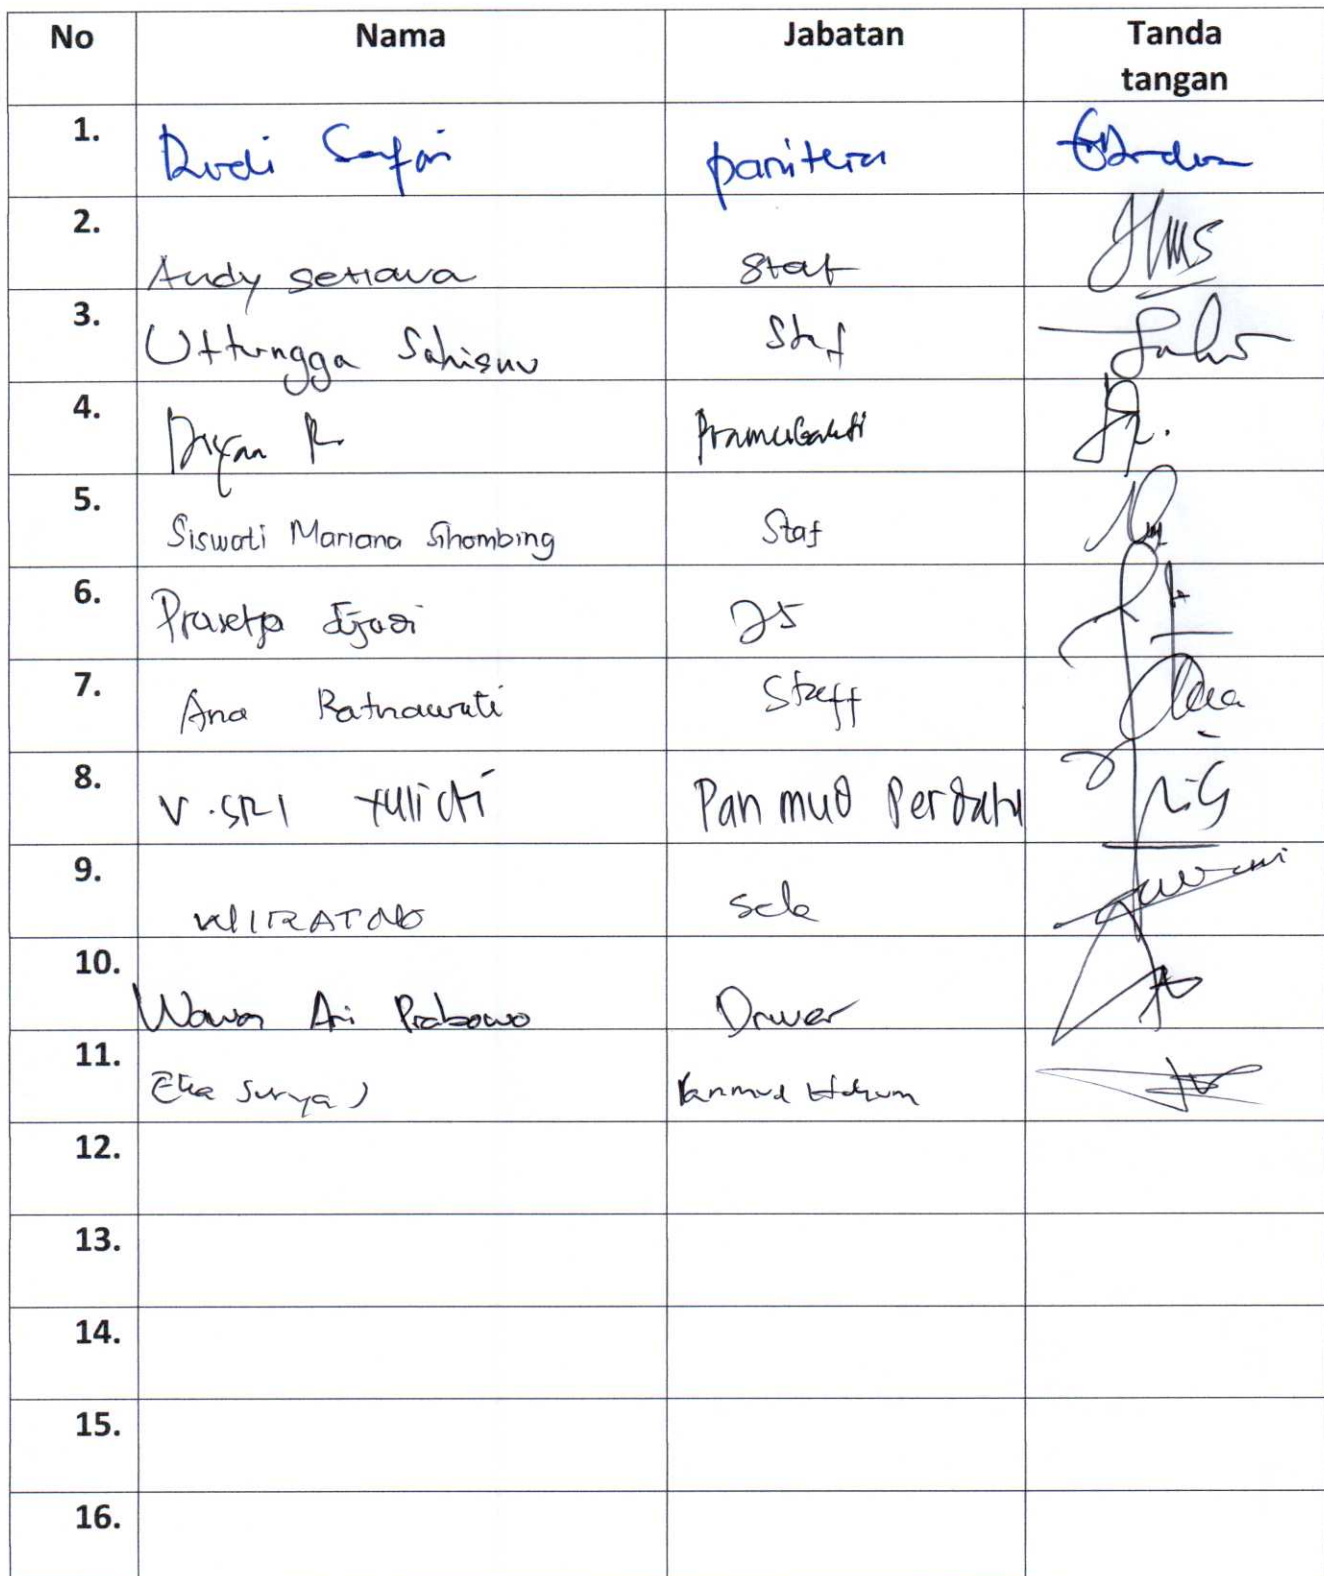 No Nama Jabatan Tanda
tangan
1. Rudi Safari panitera
2. Andy Setiawa Staf
3. Uttungga Sahisnu Staf
4. Pramubakti
5. Siswati Mariana Sihombing Staf
6. Prasetyo JS
7. Ana Ratnawati Staff
8. V. SRI YULIATI Pan mud Perdata
9. WIRATNO
10. Wawan Ari Prabowo Driver
11. Eka Surya J Panmud Hukum
12.
13.
14.
15.
16.